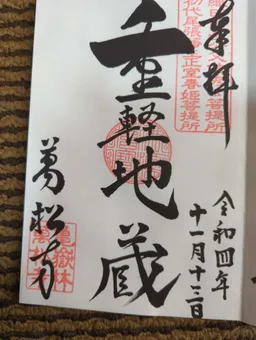 奉拝
菩提所
正室春姫菩提所
令和四年
十一月十三日
重軽地蔵
萬松寺
亀嶽林
萬松寺